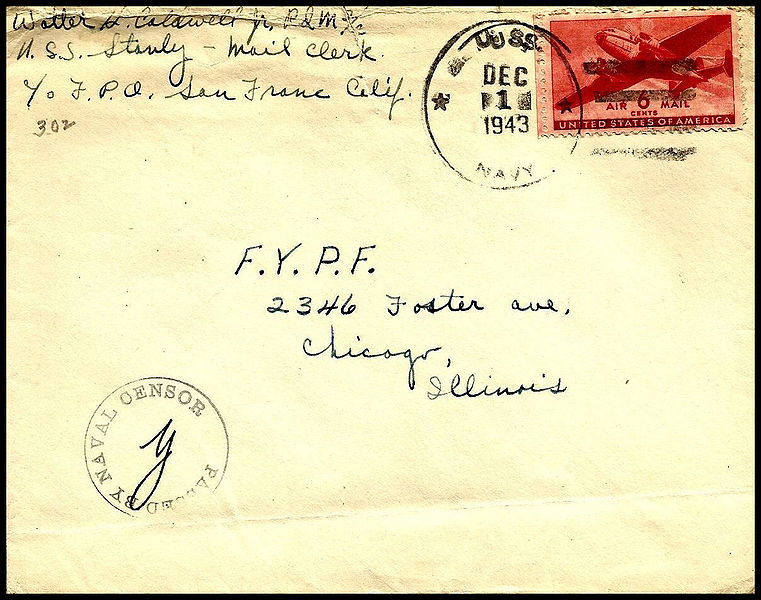 Walter G. Caldwell Jr,
U.S.S. Stanly - mail clerk.
F.P.O. San Franc Calif.
302
U.S.S.
DEC
1
1943
NAVY
AIR 6 MAIL
CENTS
UNITED STATES OF AMERICA
F.Y.P.F.
2346 Foster ave.
Chicago,
Illinois
PASSED BY NAVAL CENSOR
y